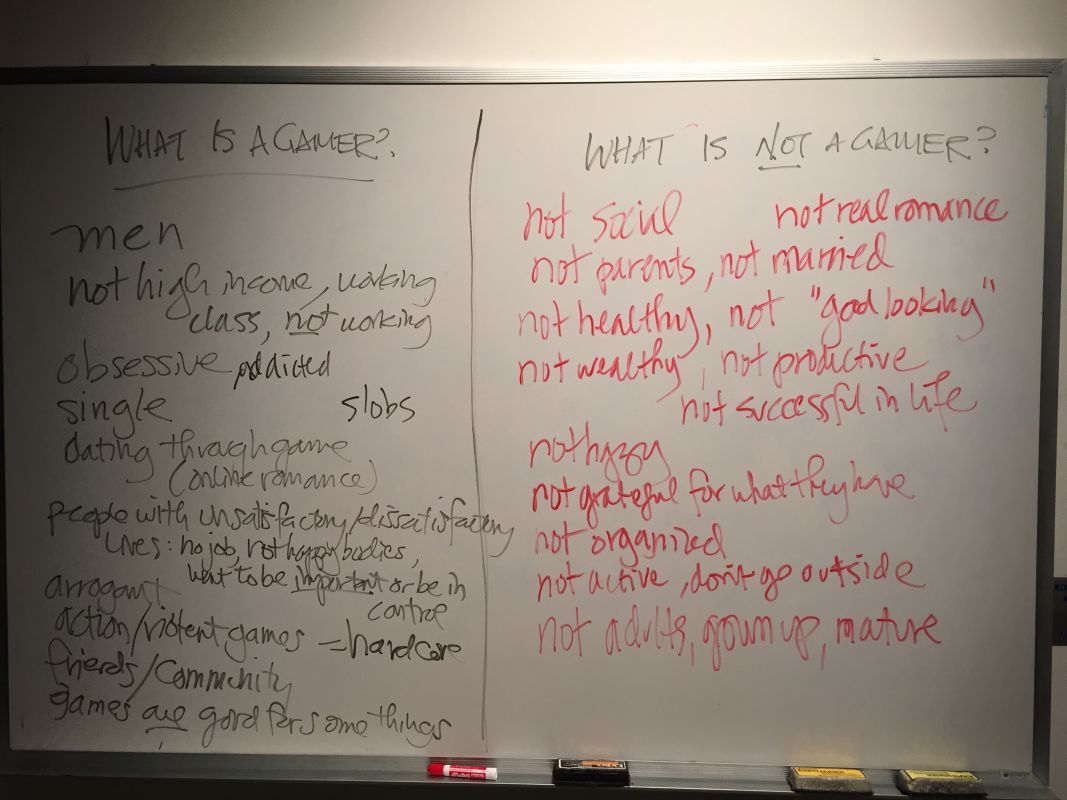 WHAT IS A GAMER?
men
not high income, working
class, not working
obsessive addicted
single slobs
dating through game
(online romance)
people with unsatisfactory/dissatisfactory
lives: no job, not happy bodies,
want to be important or be in
control
arrogant
action/violent games = hardcore
friends/Community
games are good for some things
WHAT IS NOT A GAMER?
not social not real romance
not parents, not married
not healthy, not "good looking"
not wealthy, not productive
not successful in life
not happy
not grateful for what they have
not organized
not active, don't go outside
not adults, grown up, mature